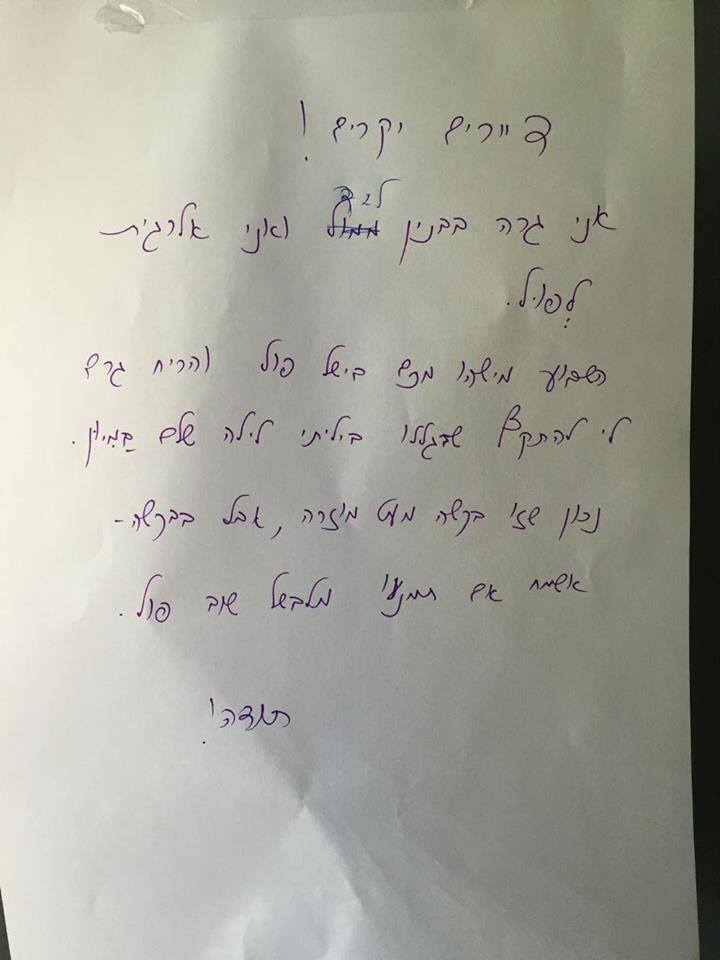 דיירים יקרים!
אני גרה בבנין ליד ואני אלרגית
לְפול.
השבוע מישהו מכם בישל פול והריח גרם
לי להתקף שבגללו ביליתי לילה שלם בַּמִיון.
נכון שזו בקשה מעט מוזרה, אבל בבקשה-
אשמח אם תמנעו מלבשל שוב פול.
תודה!